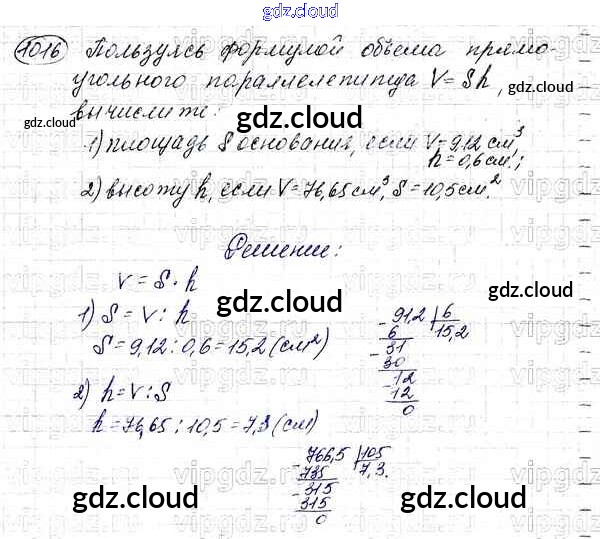 gdz.cloud
1016 Пользуясь формулой объема прямо-
угольного параллелепипеда V=Sh,
вычислите:
1) площадь S основания, если V=9,12 см³
h=0,6 см;
2) высоту h, если V=76,65 см³, S=10,5 см².
Решение:
V=S·h
1) S=V:h
S=9,12:0,6=15,2 (см²)
91,2 | 6
6 15,2
31
30
12
12
0
2) h=V:S
h=76,65:10,5=7,3 (см)
766,5 | 105
735 7,3.
315
315
0
gdz.cloud
gdz.cloud
gdz.cloud
gdz.cloud
gdz.cloud
gdz.cloud
gdz.cloud
gdz.cloud
gdz.cloud